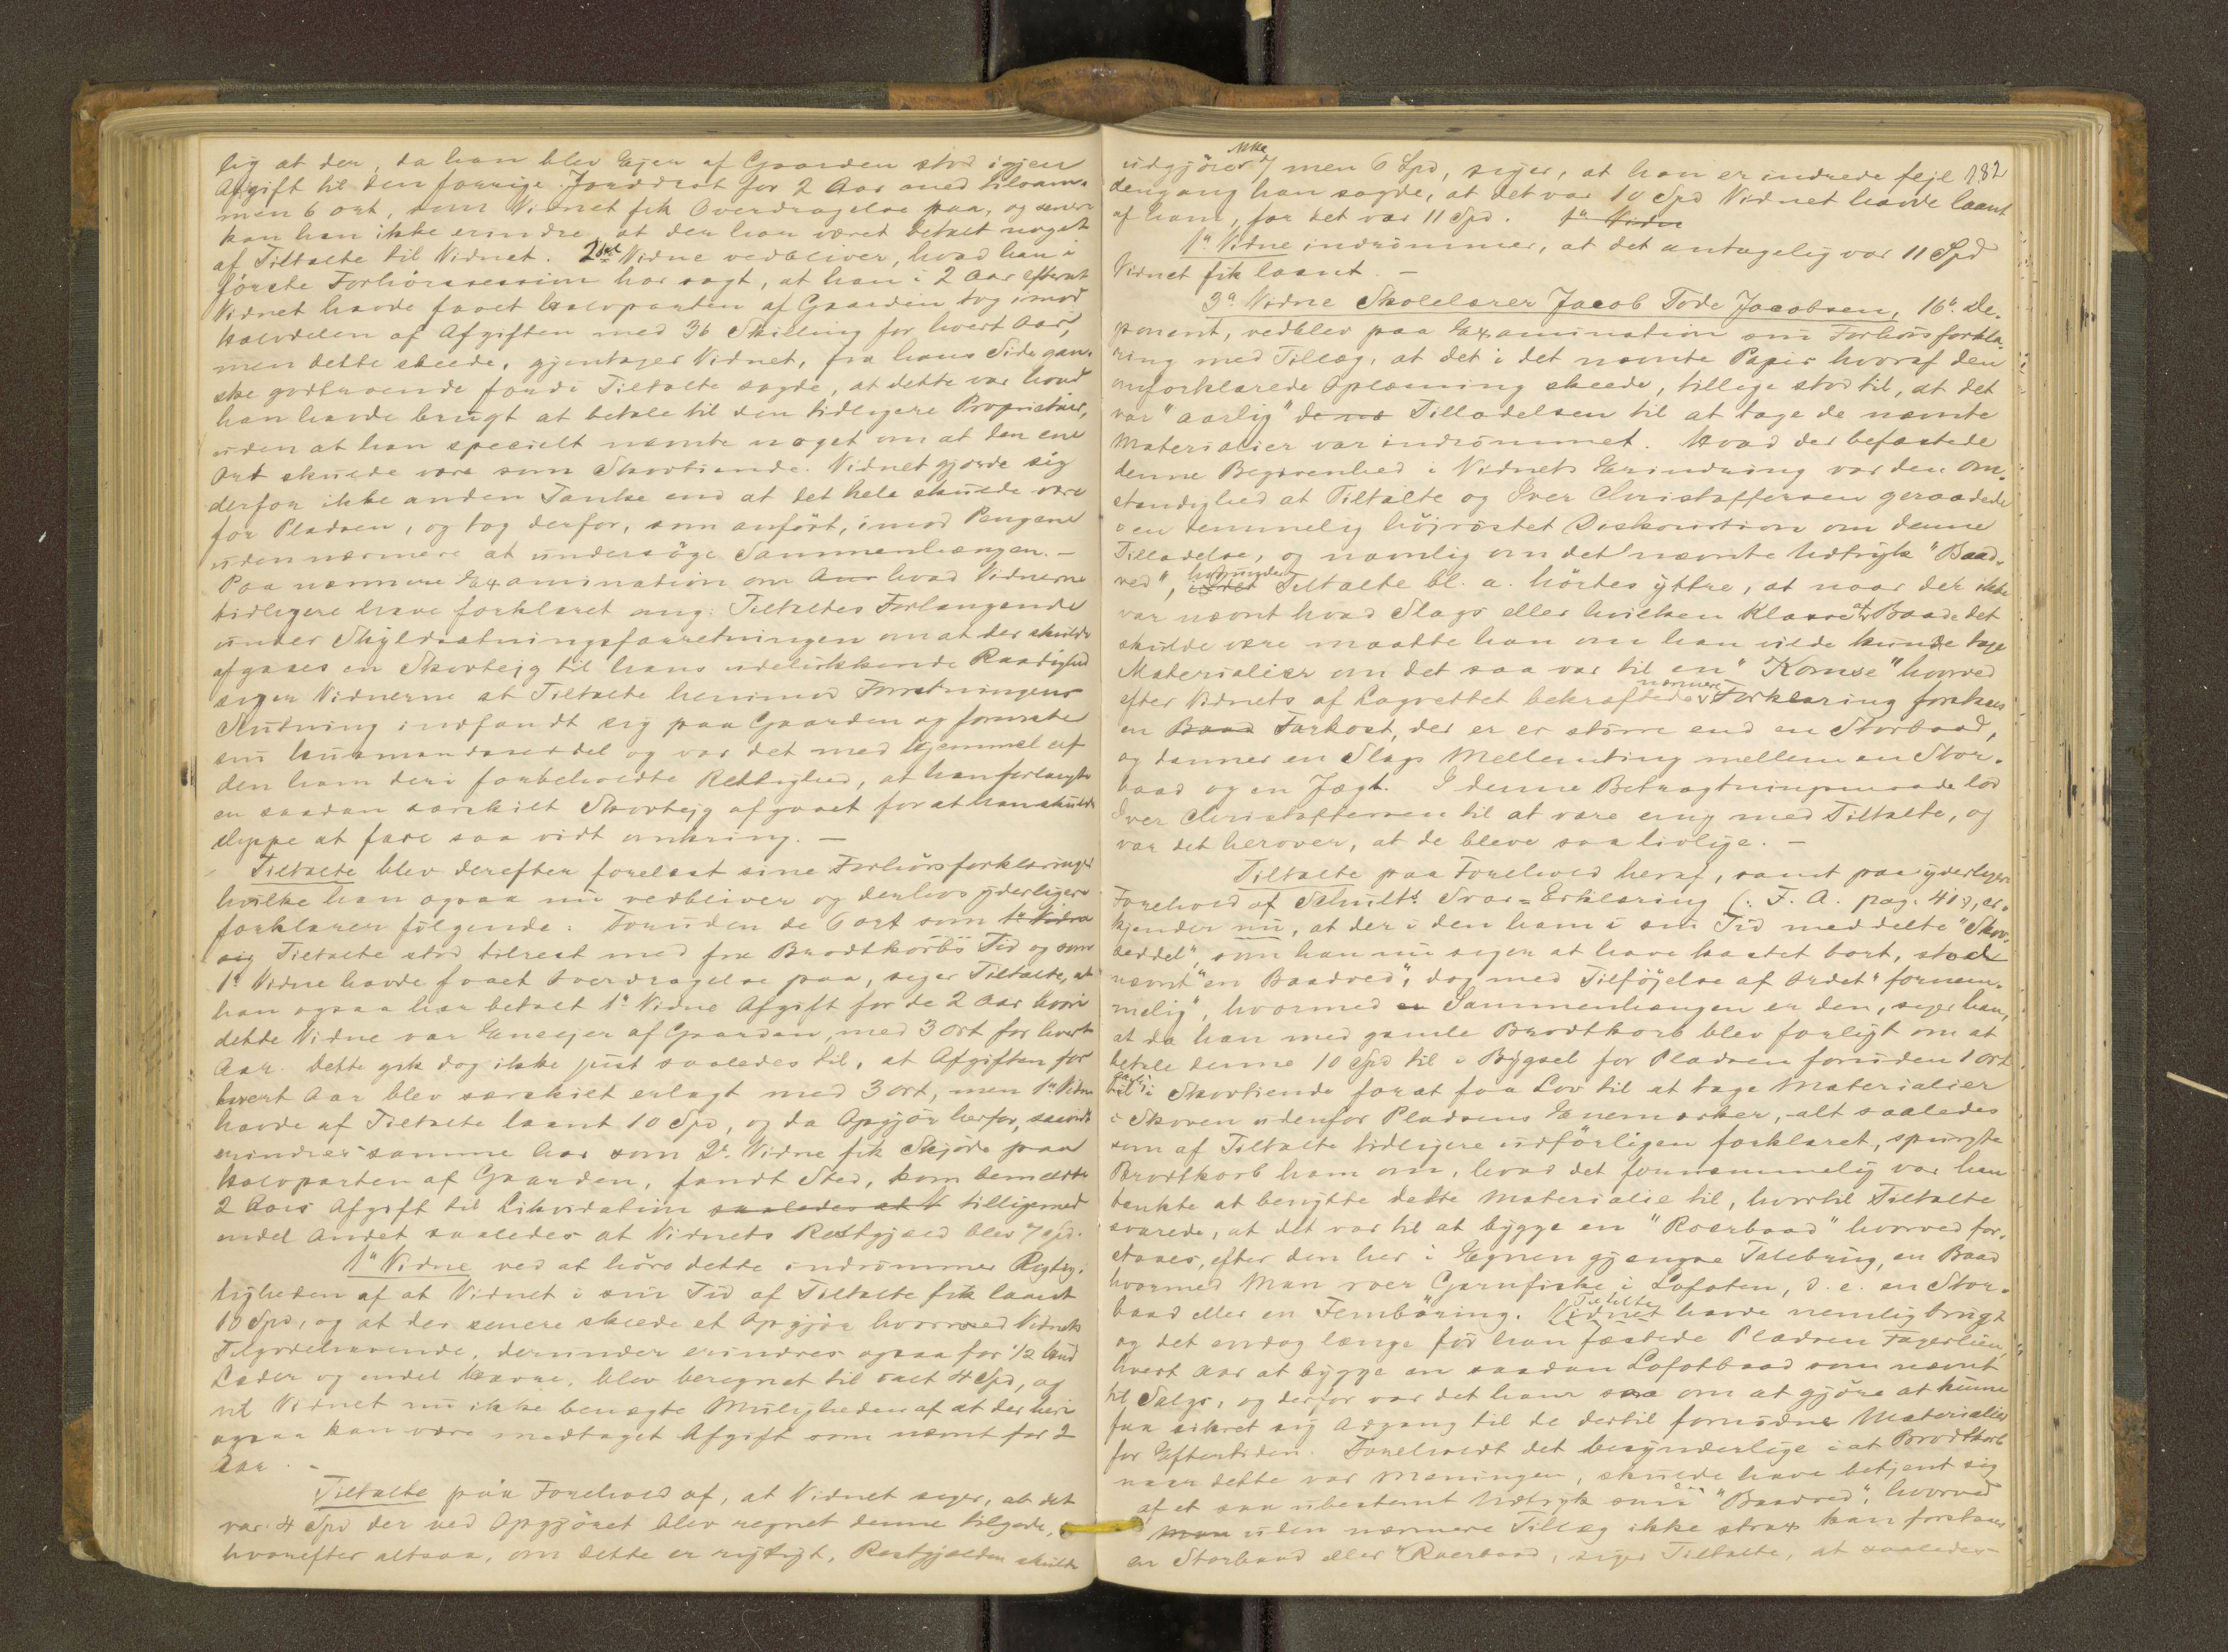 lig at der, da han blev Ejer af Gaarden stod igjen
Afgift til den forrige Jorddrot for 2 Aar med tilsam-
men 6 ort, som Vidnet fik Overdragelse paa, og senere
kan han ikke erindre, at der har været betalt noget
af Tiltalte til Vidnet. 2det Vidne vedbliver, hvad han i
første Forhørssession har sagt, at han i 2 Aar efterat
Vidnet havde faaet Halvparten af Gaarden tog imod
Halvdelen af Afgiften med 36 Skilling for hvert Aar,
men dette skeede, gjentager Vidnet, fra hans Side gan-
ske godtroende fordi Tiltalte sagde, at dette var hvad
han havde brugt at betale til den tidligere Proprietær,
uden at han specielt nævnte noget om at den ene
Ort skulde være som Skovtiende. Vidnet gjorde sig
derfor ikke anden Tanke end at det hele skulde være
for Pladsen, og tog derfor, som anført, imod Pengene
uden nærmere at undersøge Sammenhængen. —
Paa nærmere Examination om hvad Vidnerne
tidligere have forklaret ang: Tiltaltes Forlangende
under Skyldsætningsforretningen om at der skulde
afgaaes en Skovteig til hans udelukkende Raadighed
siger Vidnerne at Tiltalte henimod Forretningens
Slutning indfandt sig paa Gaarden og foreviste
sin Husmandsseddel og var det med Hjemmel af
den ham deri forbeholdte Rettighed, at han forlangte
en saadan særskilt Skovtejg afgaaet for at han skulde
slippe at fare saa vidt omkring. —
Tiltalte blev derefter forelæst sine Forhørsforklaringer
hvilke han ogsaa nu vedbliver og derhos yderligere
forklarer følgende: Foruden de 6 ort som 1ste Vidne
sig Tiltalte stod tilrest med fra Brodtkorbs Tid og som
1ste Vidne havde faaet Overdragelse paa, siger Tiltalte, at
han ogsaa har betalt 1ste Vidne Afgift for de 2 Aar hvori
dette Vidne var Eneejer af Gaarden, med 3 ort for hvert
Aar. Dette gik dog ikke just saaledes til, at Afgiften for
hvert Aar blev særskilt erlagt med 3 ort, men 1ste Vidne
havde af Tiltalte laant 10 Spd, og da Opgjør herfor, saavidt
erindres samme Aar som 2det Vidne fik Skjøde paa
Halvparten af Gaarden, fandt Sted, kom bemeldte
2 Aars Afgift til Likvidation saaledes at V tilligemed
endel Andet saaledes at Vidnets Restgjæld blev 7 Spd.
1ste Vidne ved at høre dette indrømmer Rigtig-
ligheden af at Vidnet i sin Tid af Tiltalte fik laant
10 Spd, og at der senere skeede et Opgjør hvorved Vidnets
Tilgodehavende, derunder erindres ogsaa for 1/2 Hud
Læder og endel Varer, blev beregnet til talt 4 Spd, og
vil Vidnet nu ikke benægte Muligheden af at der heri
ogsaa kan være medtaget Afgift som nævnt for 2
Aar. —
Tiltalte paa Forehold af, at Vidnet siger, at det
var 4 Spd der ved Opgjøret blev regnet denne tilgode,
hvorefter altsaa, om dette er rigtigt, Restgjælden skulde
182
udgjøre ikke 7 men 6 Spd, siger, at han erindrede fejl
dengang han sagde, at det var 10 Spd Vidnet havde laant
af ham, for det var 11 Spd. 1ste Vidne
1ste Vidne indrømmer, at det antagelig var 11 Spd
Vidnet fik laant. —
3die Vidne Skolelærer Jacob Tode Jacobsen, 16de De-
ponent, vedblev paa Examination sin Forhørsforkla-
ring med Tillæg, at det i det nævnte Papir hvoraf den
omforklarede Oplæsning skeede, tillige stod til, at det
var "aarlig" Tilladelsen til at tage de nævnte
Materialier var indrømmet. Hvad der befæstede
denne Begivenhed i Vidnets Erindring var den Om-
stændighed at Tiltalte og Iver Christoffersen geraadede
i en temmelig højrøstet Diskourtion om denne
Tilladelse, og navnlig om det nævnte Udtryk "Baad-
ved", hvorunder Tiltalte bl. a. hørtes yttre, at naar der ikke
var nævnt hvad Slags eller hvilken Klasse af Baade det
skulde være maatte han om han vilde kunde tage
Materialier om det saa var til en "Komse" hvorved
efter Vidnets af Lagrettet bekræftede nærmere Forklaring forstaaes
en Baad Farkost, der er større end en Storbaad,
og danner en Slags Mellemting mellem en Stor-
baad og en Jægt. I denne Betragtningsmaade lod
Iver Christoffersen til at være enig med Tiltalte, og
var det herover, at de bleve saa livlige. —
Tiltalte paa Forehold heraf, samt paa yderligere
Forehold af Schults Svar-Erklæring (: F. A. pag. 41:), er-
kjender nu, at der i den ham i sin Tid meddelte "Skov-
seddel", som han nu siger at have kastet bort, stod
nævnt "en Baadved", dog med Tilføjelse af Ordet "fornem-
melig", hvormed Sammenhængen er den, siger han,
at da han med gamle Brodtkorb blev forligt om at
betale denne 10 Spd til i Bygsel for Pladsen foruden 1 Ort
aarlig i Skovtiende for at faa Lov til at tage Materialier
i Skoven udenfor Pladsens Enemærker, alt saaledes
som af Tiltalte tidligere udførligen forklaret, spurgte
Brodtkorb ham om, hvad det fornemmelig var han
tænkte at benytte dette Materialie til, hvortil Tiltalte
svarede, at det var til at bygge en "Roerbaad" hvorved for-
staaes, efter den her i Egnen gjængse Talebrug, en Baad
hvormed Man roer Garnfiske i Lofoten, d. e. en Stor-
baad eller en Fembøring. Vidnet Tiltalte havde nemlig brugt
og det endog længe før han fæstede Pladsen Fagerlien,
hvert Aar at bygge en saadan Lofotbaad som nævnt
til Salgs, og derfor var det ham saa om at gjøre at kunne
faa sikret sig Adgang til de dertil fornødne Materialier
for Eftertiden. Foreholdt det besynderlige i at Brodtkorb
naar dette var Meningen, skulde have betjent sig
af et saa ubestemt Udtryk som "Baadved", hvorved
Man uden nærmere Tillæg ikke strax kan forstaaes
en Storbaad eller Roerbaad, siger Tiltalte, at saaledes